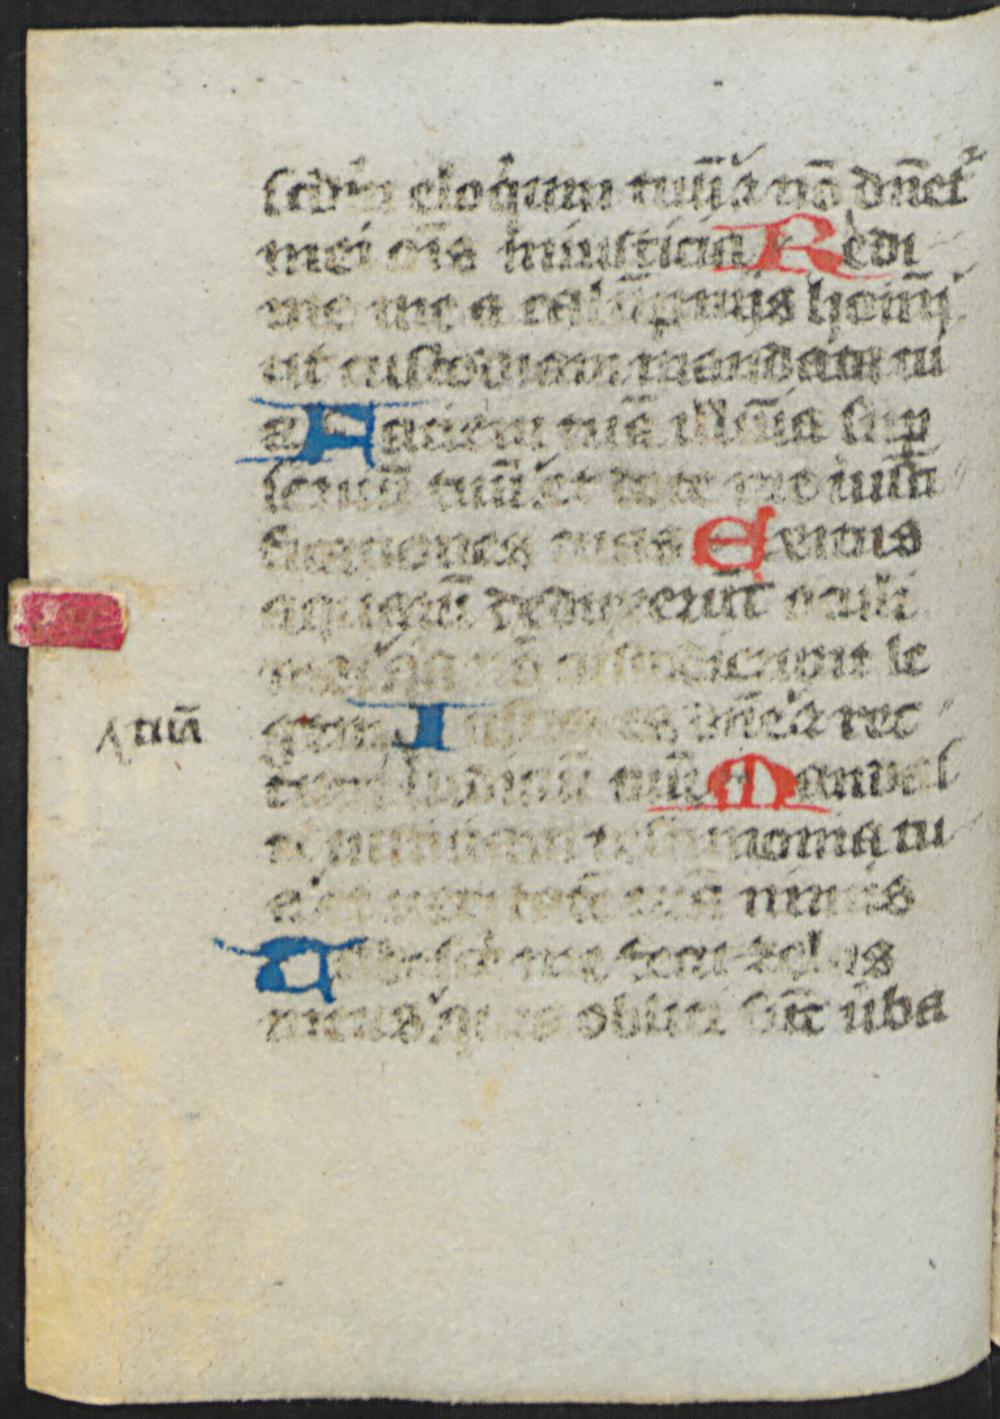 scdm eloqum tuū ⁊ nō dnet̄
mei oīs iniusticia Redi
me me a calūpnijs hoīnū
ut custodiam mandata tu
a Faciem tuā illūīa sup
seruū tuū et doce me iusti
ficaciones tuas Exitus
aquarū deduxerūt oculi
mei qā nō custodierunt le
gem Iustus es dn̄e ⁊ rec
Atuā
tum iudiciū tuū Mandas
ti iusticiam testimonia tu
a et veritatē tuā nimis
Tabescē me fecit zelus
meus quia obliti sūt ūba